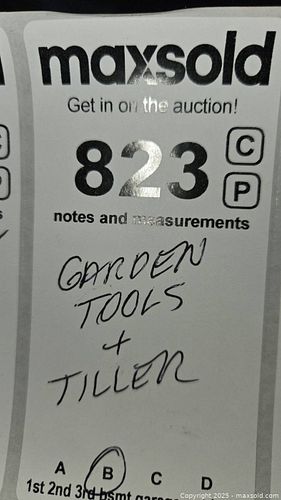 maxsold
Get in on the auction!
823
C
P
notes and measurements
GARDEN
TOOLS
+
TILLER
A B C D
1st 2nd 3rd bsmt
Copyright 2025 - maxsold.com